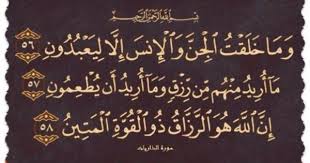 بسم الله الرحمن الرحيم
وَمَا خَلَقْتُ الْجِنَّ وَالْإِنسَ إِلَّا لِيَعْبُدُونِ ٥٦
مَا أُرِيدُ مِنْهُم مِّن رِّزْقٍ وَمَا أُرِيدُ أَن يُطْعِمُونِ ٥٧
إِنَّ اللَّهَ هُوَ الرَّزَّاقُ ذُو الْقُوَّةِ الْمَتِينُ ٥٨
سورة الذاريات